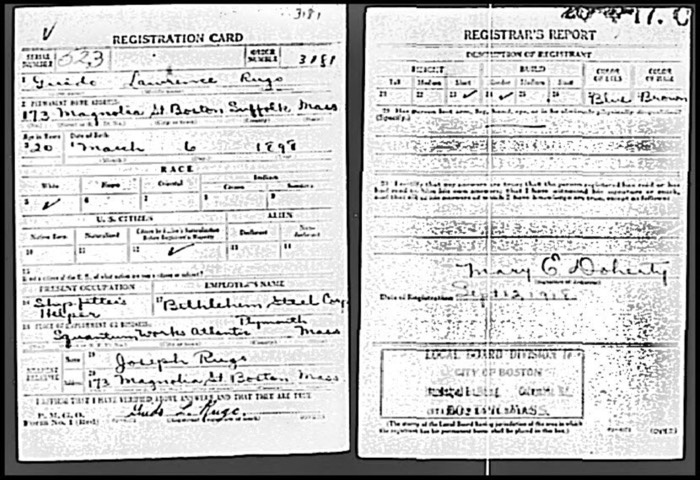 3181
REGISTRATION CARD
SERIAL NUMBER 523 ORDER NUMBER 3181
1 Guido Lawrence Rugo
2 PERMANENT HOME ADDRESS:
173 Magnolia St Boston Suffolk Mass
Age in Years Date of Birth
3 20 4 March 6 1898
RACE
White Negro Oriental Indian
Citizen
5 ✓ 6 7 8 9
U. S. CITIZEN ALIEN
Native Born Naturalized Citizen by Father's Naturalization Before Registrant's Majority Declarant Non-declarant
10 11 12 ✓ 13 14
15
If not a citizen of the U. S., of what nation are you a citizen or subject?
PRESENT OCCUPATION EMPLOYER'S NAME
16 Shipfitter's Helper 17 Bethlehem Steel Corp
18 PLACE OF EMPLOYMENT OR BUSINESS:
Squantum Works Atlantic Plymouth Mass
NEAREST RELATIVE
Name 19 Joseph Rugo
Address 20 173 Magnolia St Boston Mass
I AFFIRM THAT I HAVE VERIFIED ABOVE ANSWERS AND THAT THEY ARE TRUE
P. M. G. O.
Form No. 1 (Red) Guido L. Rugo
REGISTRAR'S REPORT
DESCRIPTION OF REGISTRANT
HEIGHT BUILD COLOR OF EYES COLOR OF HAIR
Tall Medium Short Slender Medium Stout
21 22 23 ✓ 24 ✓ 25 26 Blue Brown
29 Has person lost arm, leg, hand, eye, or is he obviously physically disqualified?
(Specify.)
30 I certify that my answers are true; that the person registered has read or has had read to him his own answers; that I have witnessed his signature or mark, and that all of his answers of which I have knowledge are true, except as follows:
Mary E Doherty
(Signature of Registrar)
Date of Registration Sept 12, 1918
LOCAL BOARD DIVISION
CITY OF BOSTON
BOSTON, MASS.
(The stamp of the Local Board having jurisdiction of the area in which the registrant has his permanent home shall be placed in this box.)
(OVER)